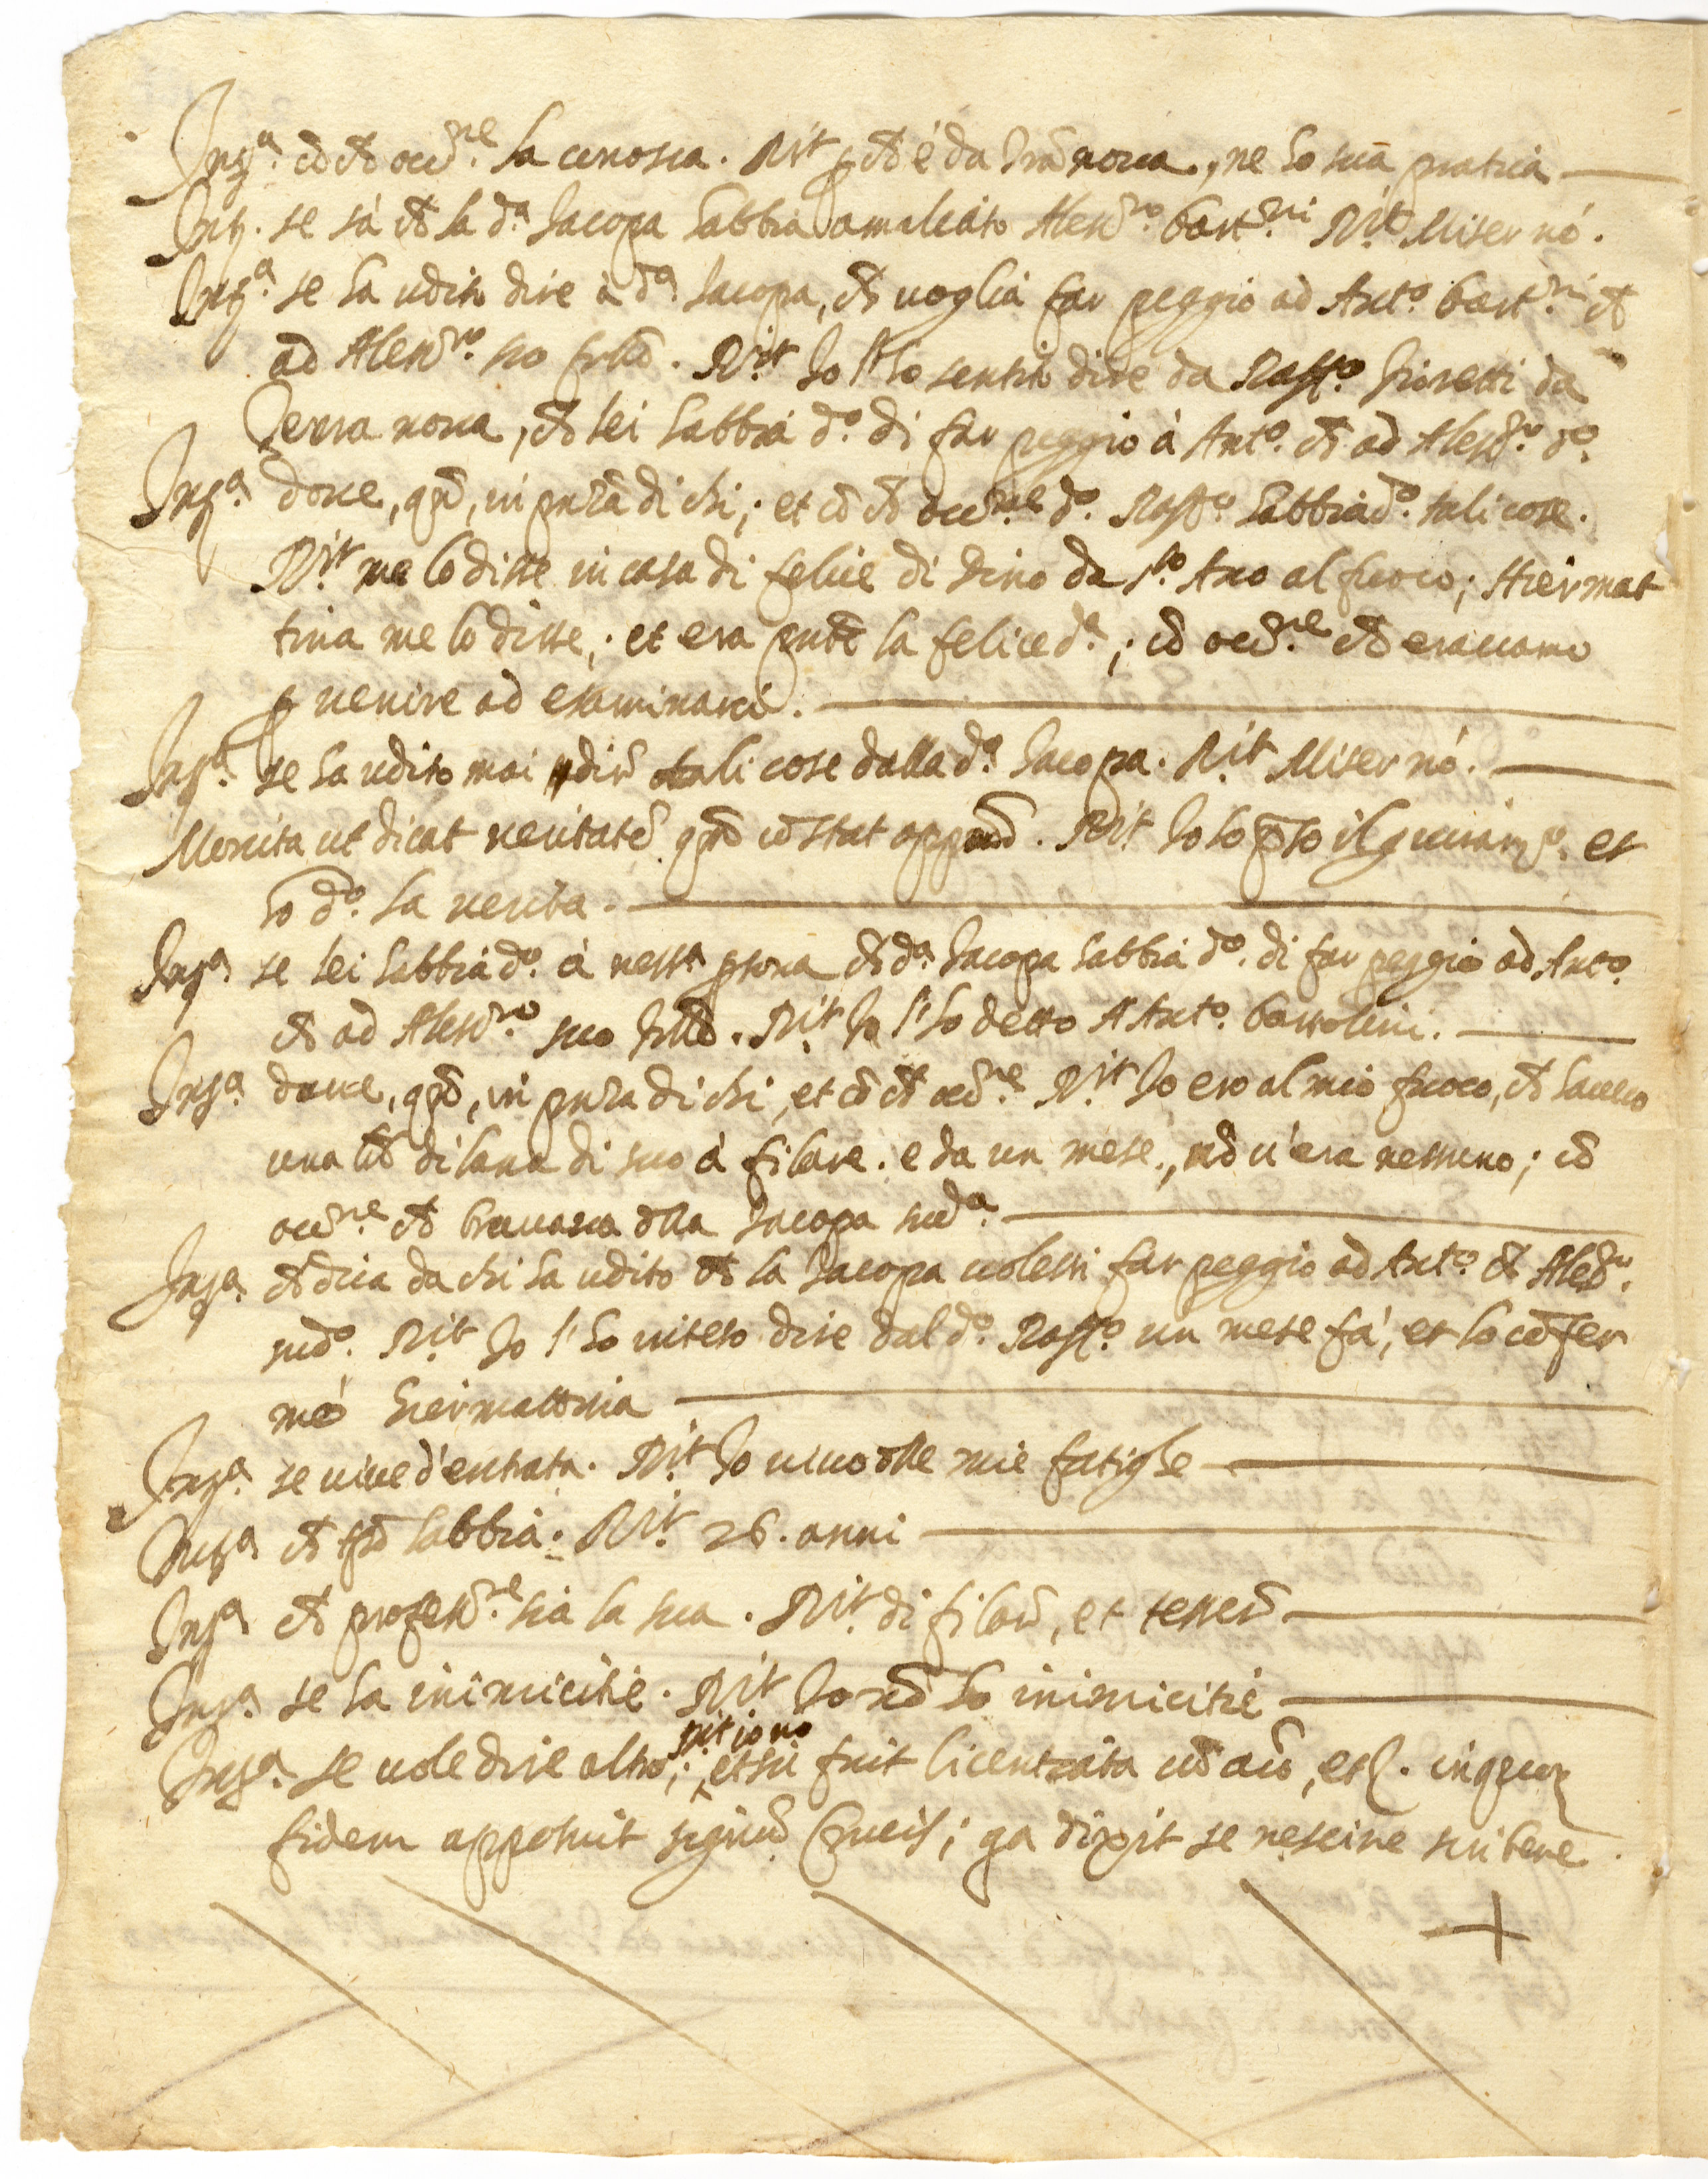 Int.ª cō ch̄ occ.ne la conosca. Rit. p ch̄ é da Trānoua, ne ho sua pratica
Int. se sà ch̄ la d.ª Iacopa habbia amaliato Aless.ro bart.ni Rit. Miser nó.
Int.ª se ha udito dire à d.ª Iacopa, ch̄ uoglia far peggio ad Ant.º bart.ni et
ad Aless.ro suo frlló. Rit. Io l'ho sentito dire da Raff.º fioretti da
Terra noua, ch̄ lei habbia d.º di far peggio à Ant.º et ad Aless.ro d.º
Int.ª doue, qn̄, in pn̄za di chi; et cō ch̄ occ.ne d.º Raff.º habbia d.º tali cose.
Rit. me lo disse in casa di felice di Dino da s.to Ano al fuoco; Hiermat
tina me lo disse; et era pn̄te la felice d.ª; cō occ.ne ch̄ erauamo
p uenire ad esaminarci.
Int.ª se ha udito mai dir̄ tali cose dalla d.ª Iacopa. Rit. Miser nó.
Monita ut dicat ueritatē qn̄ cōstat oppoū. Rit. Io ho pso il giuram.º et
ho d.º la uerita.
Int.ª se lei habbia d.º à ness.ª psona ch̄ d.ª Iacopa habbia d.º di far peggio ad Ant.º
et ad Aless.ro suo frllō. Rit. Io l'ho detto A Ant.º bartolini.
Int.ª doue, qn̄, in pn̄za di chi, et cō ch̄ occ.ne Rit. Io ero al mio fuoco, ch̄ haueuo
una lb̄ di lana di suo à filare. e da un mese, nō u'era nessuno; cō
occ.ne ch̄ brauaua dlla Iacopa sud.ª
Int.ª ch̄ dica da chi ha udito ch̄ la Iacopa uolessi far peggio ad Ant.º et Aless.ro
sud.º Rit. Io l'ho inteso dire dal d.º Raff.º un mese fa', et lo cōfer
mó hiermattina
Int.ª se uiue d'entrata. Rit. Io uiuo dlle mie fatighe
Int.ª ch̄ tp̄o habbia. Rit. 26. anni
Int.ª ch̄ profess.ne sia la sua. Rit. di filar̄, et tesser̄
Int.ª se ha inimicitie. Rit. Io nō ho inimicitie
Int.ª se uole dire altro; rit io no et sic fuit licentiata cū aiū, etc. in quor
fidem apposuit signū Crucis; qa dixit se nescire scribere.
+